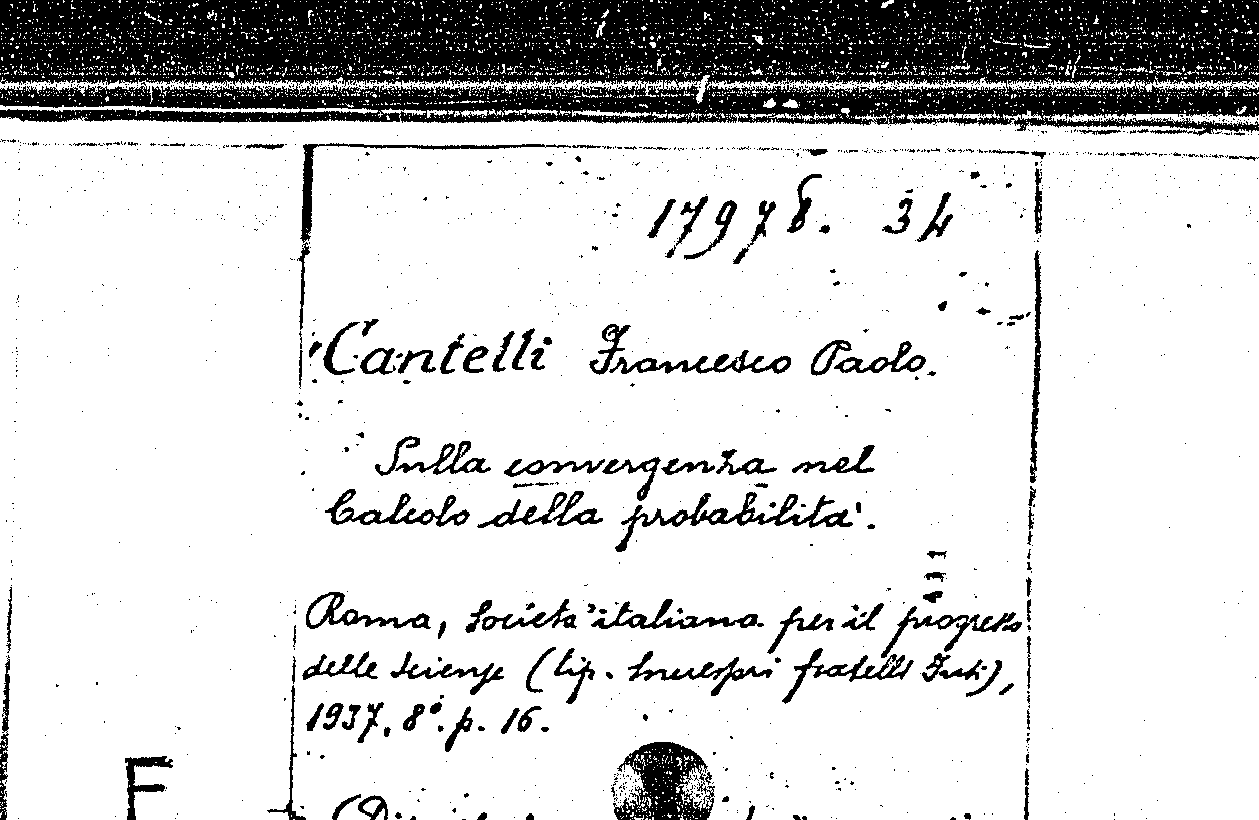 17978. 34
Cantelli Francesco Paolo.
Sulla convergenza nel
Calcolo della probabilita'.
Roma, Societa' italiana per il progresso
delle Scienze (tip. Successori fratelli Fusi),
1937, 8°. p. 16.
F